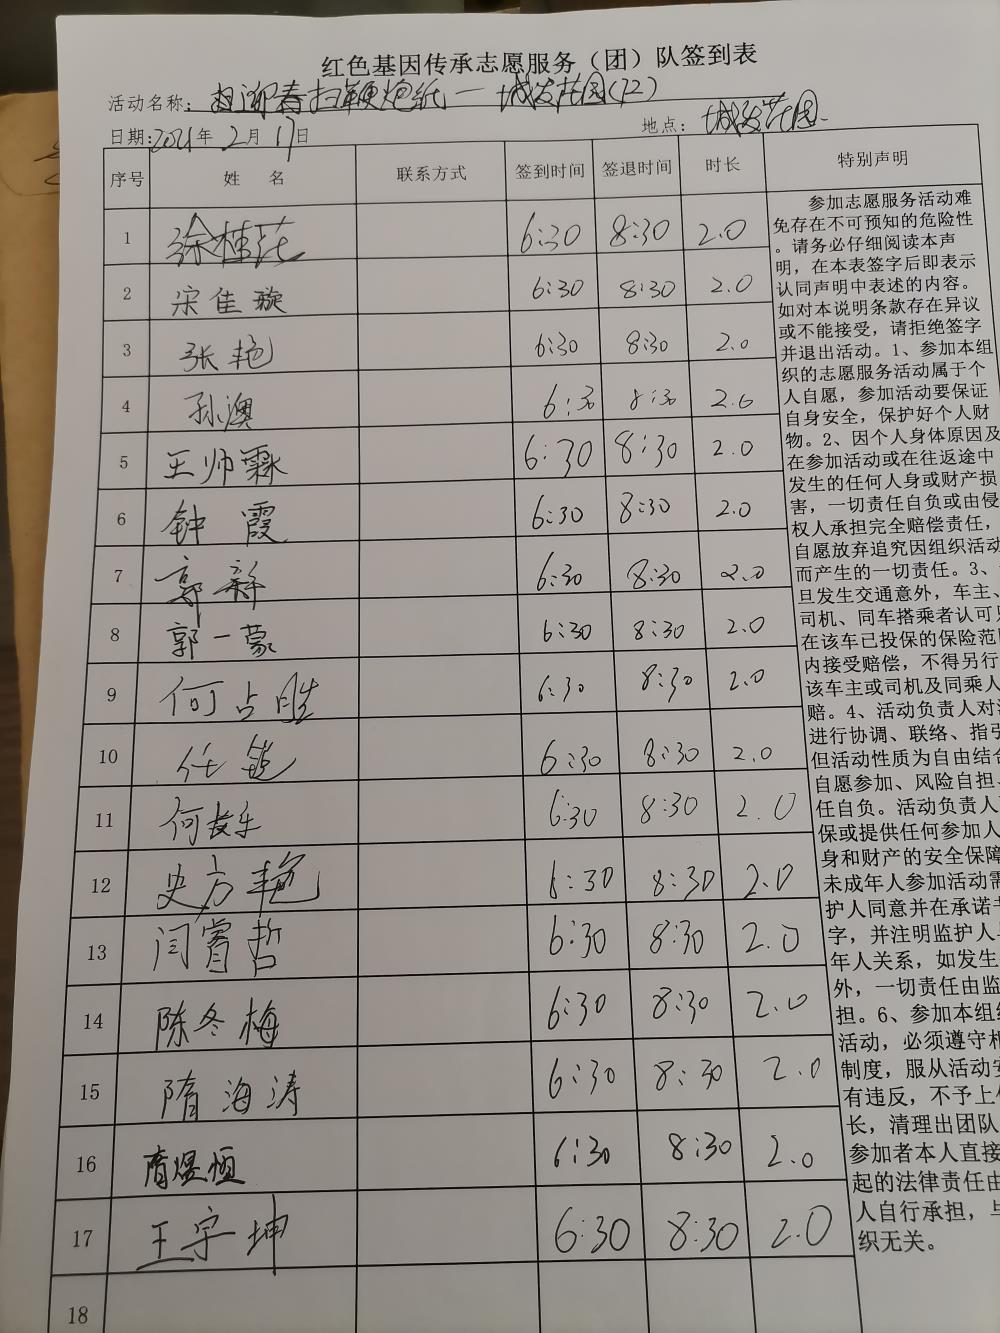 红色基因传承志愿服务（团）队签到表
活动名称：迎春扫鞭炮纸一城发花园(12)
日期:2021年2月17日 地点：城发花园
序号 姓 名 联系方式 签到时间 签退时间 时长 特别声明
1 徐桂花 6:30 8:30 2.0
2 宋佳璇 6:30 8:30 2.0
3 张艳 6:30 8:30 2.0
4 孙澳 6:30 8:30 2.0
5 王帅霖 6:30 8:30 2.0
6 钟霞 6:30 8:30 2.0
7 郭 6:30 8:30 2.0
8 郭一蒙 6:30 8:30 2.0
9 何占胜 6:30 8:30 2.0
10 任 6:30 8:30 2.0
11 何长乐 6:30 8:30 2.0
12 史方艳 6:30 8:30 2.0
13 闫睿哲 6:30 8:30 2.0
14 陈冬梅 6:30 8:30 2.0
15 隋海涛 6:30 8:30 2.0
16 煜恒 6:30 8:30 2.0
17 王宇坤 6:30 8:30 2.0
18
参加志愿服务活动难
免存在不可预知的危险性
。请务必仔细阅读本声
明，在本表签字后即表示
认同声明中表述的内容。
如对本说明条款存在异议
或不能接受，请拒绝签字
并退出活动。1、参加本组
织的志愿服务活动属于个
人自愿，参加活动要保证
自身安全，保护好个人财
物。2、因个人身体原因及
在参加活动或在往返途中
发生的任何人身或财产损
害，一切责任自负或由侵
权人承担完全赔偿责任，
自愿放弃追究因组织活动
而产生的一切责任。3、
旦发生交通意外，车主、
司机、同车搭乘者认可只
在该车已投保的保险范围
内接受赔偿，不得另行
该车主或司机及同乘人
赔。4、活动负责人对活
进行协调、联络、指引
但活动性质为自由结合
自愿参加、风险自担、
任自负。活动负责人
保或提供任何参加人
身和财产的安全保障
未成年人参加活动需
护人同意并在承诺书
字，并注明监护人与
年人关系，如发生
外，一切责任由监
担。6、参加本组织
活动，必须遵守相
制度，服从活动安
有违反，不予上传
长，清理出团队
参加者本人直接
起的法律责任由
人自行承担，与
织无关。